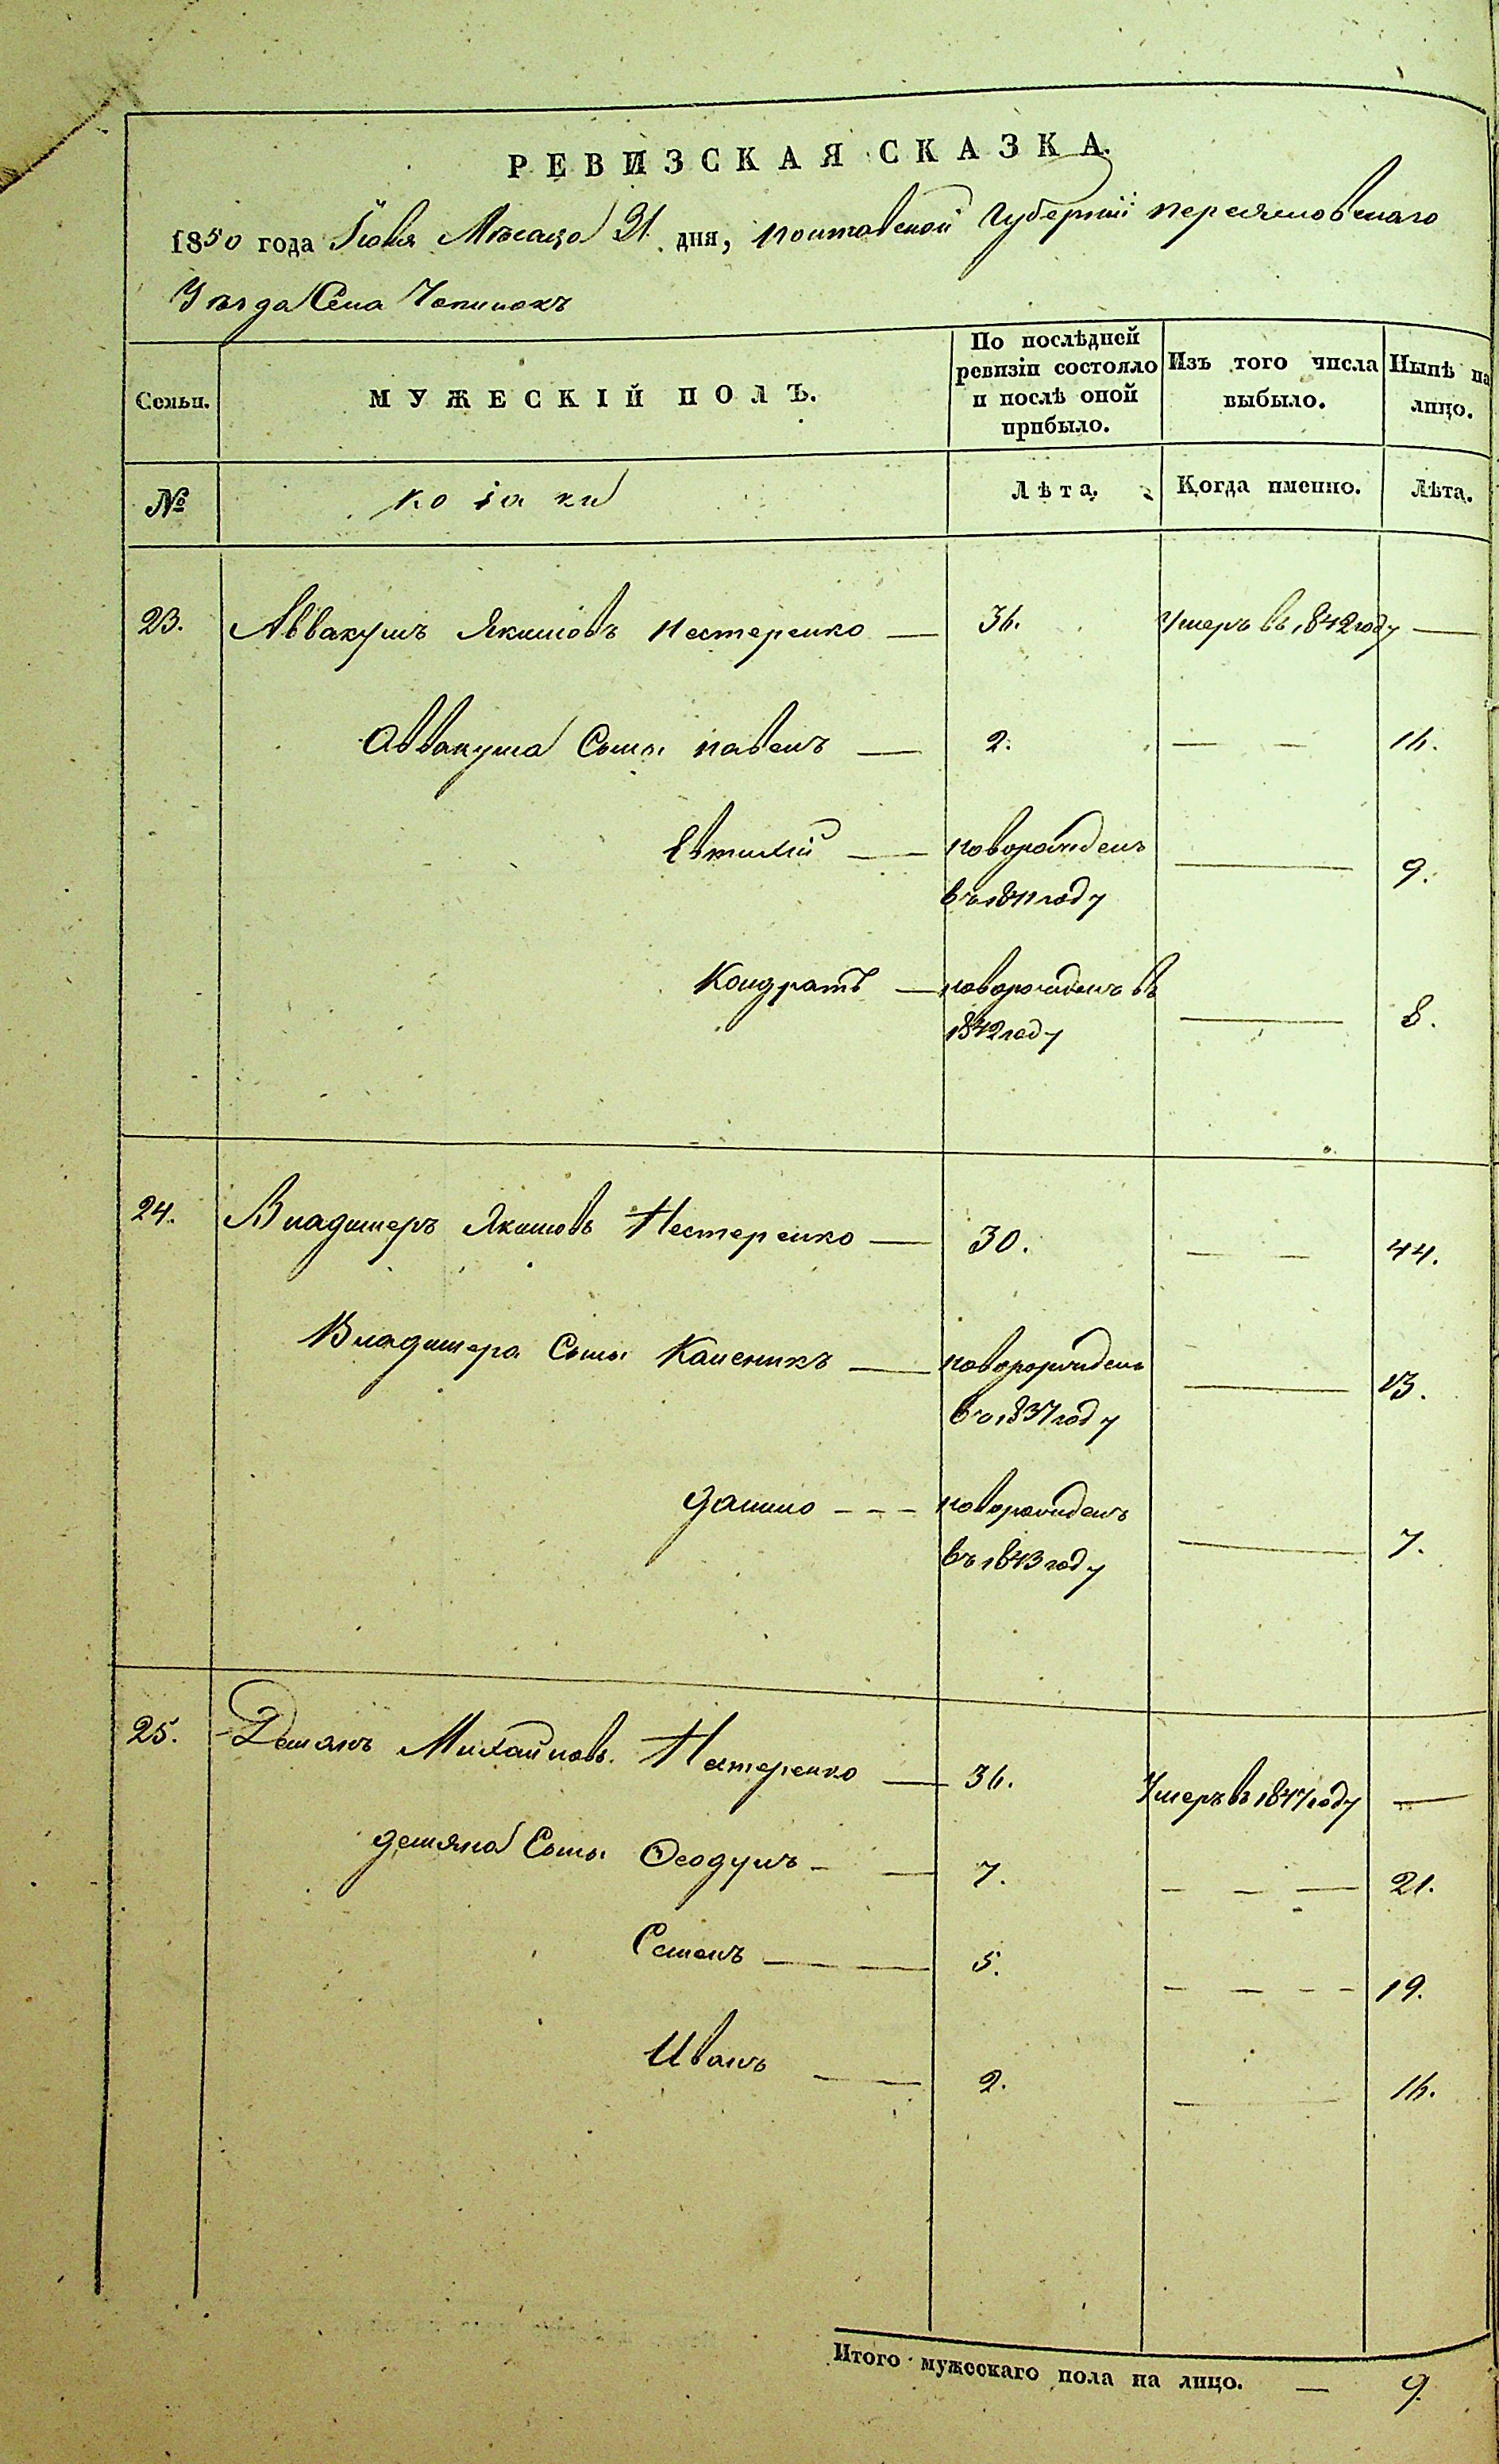 РЕВИЗСКАЯ СКАЗКА.
1850 года Іюля Мѣсяца 31 дня, Полтавской Губерніи Переяславскаго
Уѣзда Села Чопилокъ
Семьи.
МУЖЕСКІЙ ПОЛЪ.
По послѣдней
ревизіи состояло
и послѣ оной
прибыло.
Изъ того числа
выбыло.
Нынѣ на
лицо.
№
козаки
Лѣта.
Когда именно.
Лѣта.
23. Аввакумъ Якимовъ Нестеренко — 36. Умеръ въ 1842 году —
Аввакума Сыны Павелъ — 2. — — 16.
Евтихій — новорожденъ — 9.
въ 1841 году
Кондратъ — новорожденъ въ — 8.
1842 году
24. Владимеръ Якимовъ Нестеренко — 30. — — 44.
Владимера Сыны Каленикъ — новорожденъ — 13.
въ 1837 году
Данило - - - новорожденъ — 7.
въ 1843 году
25. Демянъ Михайловъ Нестеренко — 36. Умеръ въ 1847 году —
Демяна Сыны Ѳеодулъ - — 7. — — — 21.
Семенъ — — 5. - - - - 19.
Иванъ — — 2. — 16.
Итого мужескаго пола на лицо. — 9.